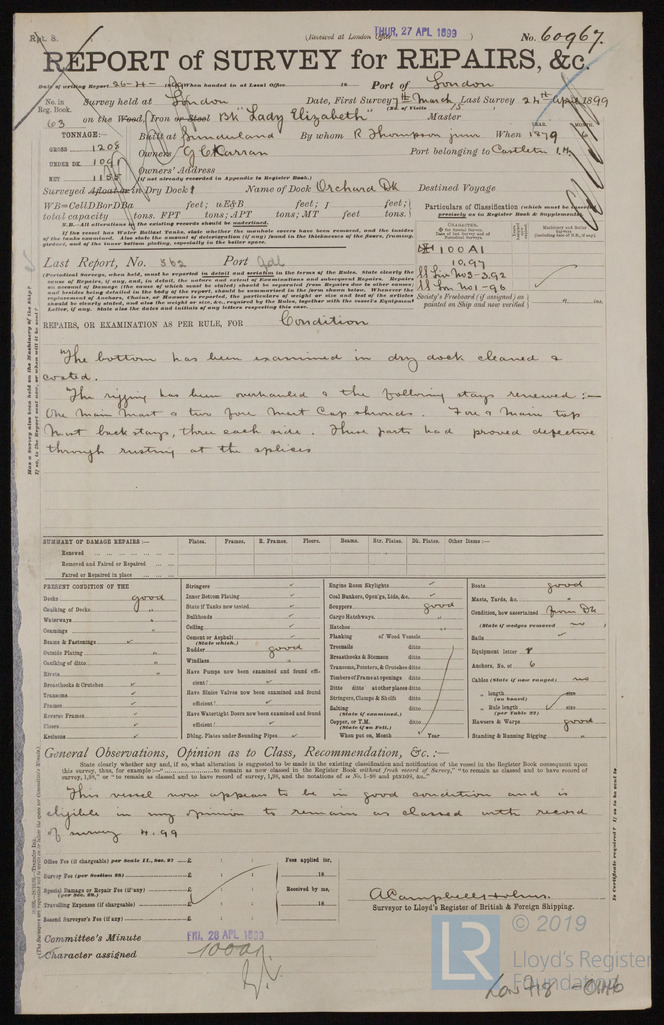 Rpt. 8.
(Received at London Office THUR. 27 APL 1899 )
No. 60967.
REPORT of SURVEY for REPAIRS, &c.
Date of writing Report 26-4- 18 When handed in at Local Office 18 Port of London
No. in Reg. Book. Survey held at London Date, First Survey 7th March Last Survey 24th April 1899
(No. of Visits )
63 on the Wood, Iron or Steel Bk "Lady Elizabeth" Master
TONNAGE:— Built at Sunderland By whom R Thompson junr When 1879
YEAR. MONTH.
GROSS 1208 Owners G C Karran Port belonging to Castletn I.M.
UNDER DK. Owners' Address
NET 1155 (if not already recorded in Appendix to Register Book.)
Surveyed Afloat or in Dry Dock? Name of Dock Orchard Dk Destined Voyage
WB=CellDBorDBa feet; uE&B feet; f feet;
total capacity tons. FPT tons; APT tons; MT feet tons.
N.B.—All alterations in the existing records should be underlined.
If the vessel has Water Ballast Tanks, state whether the manhole covers have been removed, and the insides
of the tanks examined. Also state the amount of deterioration (if any) found in the thicknesses of the floors, framing,
girders, and of the inner bottom plating, especially in the boiler space.
Particulars of Classification (which must be inserted
precisely as in Register Book & Supplement).
100A1
10,97
ss Lon No3-3.92
ss Lon No1-96
Society's Freeboard (if assigned) as painted on Ship and now verified ft. ins.
Last Report, No. 362 Port
(Periodical Surveys, when held, must be reported in detail and seriatim in the terms of the Rules. State clearly the
cause of Repairs, if any, and, in detail, the nature and extent of Examinations and subsequent Repairs. Repairs
on account of Damage (the cause of which must be stated) should be separated from Repairs due to other causes;
and besides being detailed in the body of the report, should be summarised in the form shown below. Whenever the
replacement of Anchors, Chains, or Hawsers is reported, the particulars of weight or size and test of the articles
should be clearly stated, and also the weight or size, &c., required by the Rules, together with the vessel's Equipment
Letter, if any. State also the dates and initials of any letters respecting this case.
REPAIRS, OR EXAMINATION AS PER RULE, FOR Condition
The bottom has been examined in dry dock cleaned &
coated.
The rigging has been overhauled & the following stays renewed:—
One Main Mast & two fore Mast Cap shrouds. Fore & Main top
Mast back stays, three each side. These parts had proved defective
through rusting at the splices
SUMMARY OF DAMAGE REPAIRS:— Plates. Frames. R. Frames. Floors. Beams. Str. Plates. Dk. Plates. Other Items:—
Renewed
Removed and Faired or Repaired
Faired or Repaired in place
PRESENT CONDITION OF THE
Decks good
Caulking of Decks "
Waterways "
Coamings "
Beams & Fastenings ✓
Outside Plating "
Caulking of ditto "
Rivets "
Breasthooks & Crutches ✓
Transoms ✓
Frames ✓
Reverse Frames ✓
Floors ✓
Keelsons ✓
Stringers ✓
Inner Bottom Plating ✓
State if Tanks now tested ✓
Bulkheads ✓
Ceiling ✓
Cement or Asphalt ✓
(State which.)
Rudder good
Windlass "
Have Pumps now been examined and found efficient? ✓
Have Sluice Valves now been examined and found efficient? ✓
Have Watertight Doors now been examined and found efficient? ✓
Dblng. Plates under Sounding Pipes ✓
Engine Room Skylights ✓
Coal Bunkers, Open'gs, Lids, &c. ✓
Scuppers good
Cargo Hatchways "
Hatches "
Planking of Wood Vessels
Treenails ditto
Breasthooks & Stemson ditto
Transoms, Pointers, & Crutches ditto
Timbers of Frame at openings ditto
Ditto ditto at other places ditto
Stringers, Clamps & Shelfs ditto
Salting ditto
(State if examined.)
Copper, or Y.M. ditto
(State if on Felt.)
When put on, Month Year
Boats good
Masts, Yards, &c. "
Condition, how ascertained from Dk
(State if wedges removed no )
Sails ✓
Equipment letter
Anchors, No. of 6
Cables (State if now ranged) no
" length size
(on board)
" Rule length size
(per Table 22)
Hawsers & Warps good
Standing & Running Rigging "
General Observations, Opinion as to Class, Recommendation, &c.:—
State clearly whether any and, if so, what alteration is suggested to be made in the existing classification and notation of the vessel in the Register Book consequent upon
this survey, thus, for example:—" to remain as now classed in the Register Book without fresh record of Survey," "to remain as classed and to have record of
survey, 1,98," or "to remain as classed and to have record of survey, 1,98, and the notations of ss No. 1-98 and ptND98, &c."
This vessel now appears to be in good condition and is
eligible in my opinion to remain as classed with record
of survey 4.99
Office Fee (if chargeable) per Scale II., Sec. 27 £ : : Fees applied for,
Survey Fee (per Section 28) £ : : 18
Special Damage or Repair Fee (if any) £ : : Received by me,
(per Sec. 28.)
Travelling Expenses (if chargeable) £ : : 18
Second Surveyor's Fee (if any) £ : :
A Campbell Holms.
Surveyor to Lloyd's Register of British & Foreign Shipping.
Committee's Minute FRI. 28 APL 1899
Character assigned 100A1
© 2019
LR
Lloyd's Register
Foundation
Lon 718 - 0146
Has a Survey also been held on the Machinery of the Ship?
If so, is the Report sent now, or when will it be sent?
Is Certificate required? If so, to be sent to